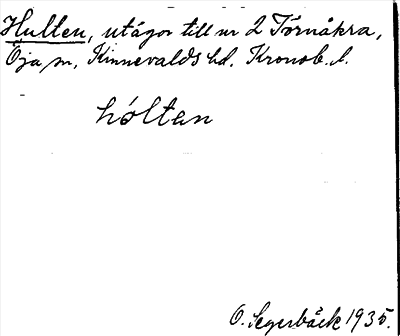 Hulten, utägor till nr 2 Törnåkra,
Öja sn, Kinnevalds hd. Kronob. l.
hóltan
O. Segerbäck 1935.